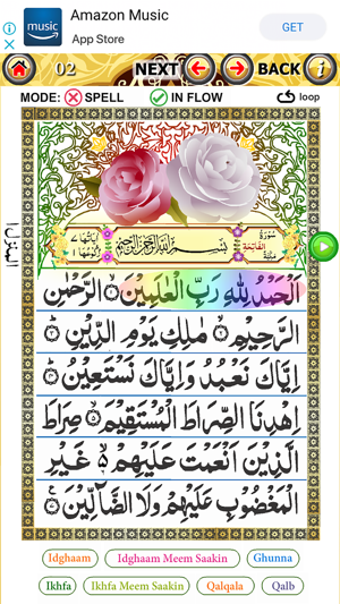 Amazon Music
music
App Store
GET
02 NEXT BACK i
MODE: SPELL IN FLOW loop
سُوْرَةُ الْفَاتِحَةِ
بِسْمِ اللّٰهِ الرَّحْمٰنِ الرَّحِيْمِ
اَلْحَمْدُ لِلّٰهِ رَبِّ الْعٰلَمِيْنَ ۝۱ الرَّحْمٰنِ
الرَّحِيْمِ ۝۲ مٰلِكِ يَوْمِ الدِّيْنِ ۝۳
اِيَّاكَ نَعْبُدُ وَاِيَّاكَ نَسْتَعِيْنُ ۝۴
اِهْدِنَا الصِّرَاطَ الْمُسْتَقِيْمَ ۝۵ صِرَاطَ
الَّذِيْنَ اَنْعَمْتَ عَلَيْهِمْ ۝۶ غَيْرِ
الْمَغْضُوْبِ عَلَيْهِمْ وَلَا الضَّآلِّيْنَ ۝۷
Idghaam Idghaam Meem Saakin Ghunna
Ikhfa Ikhfa Meem Saakin Qalqala Qalb